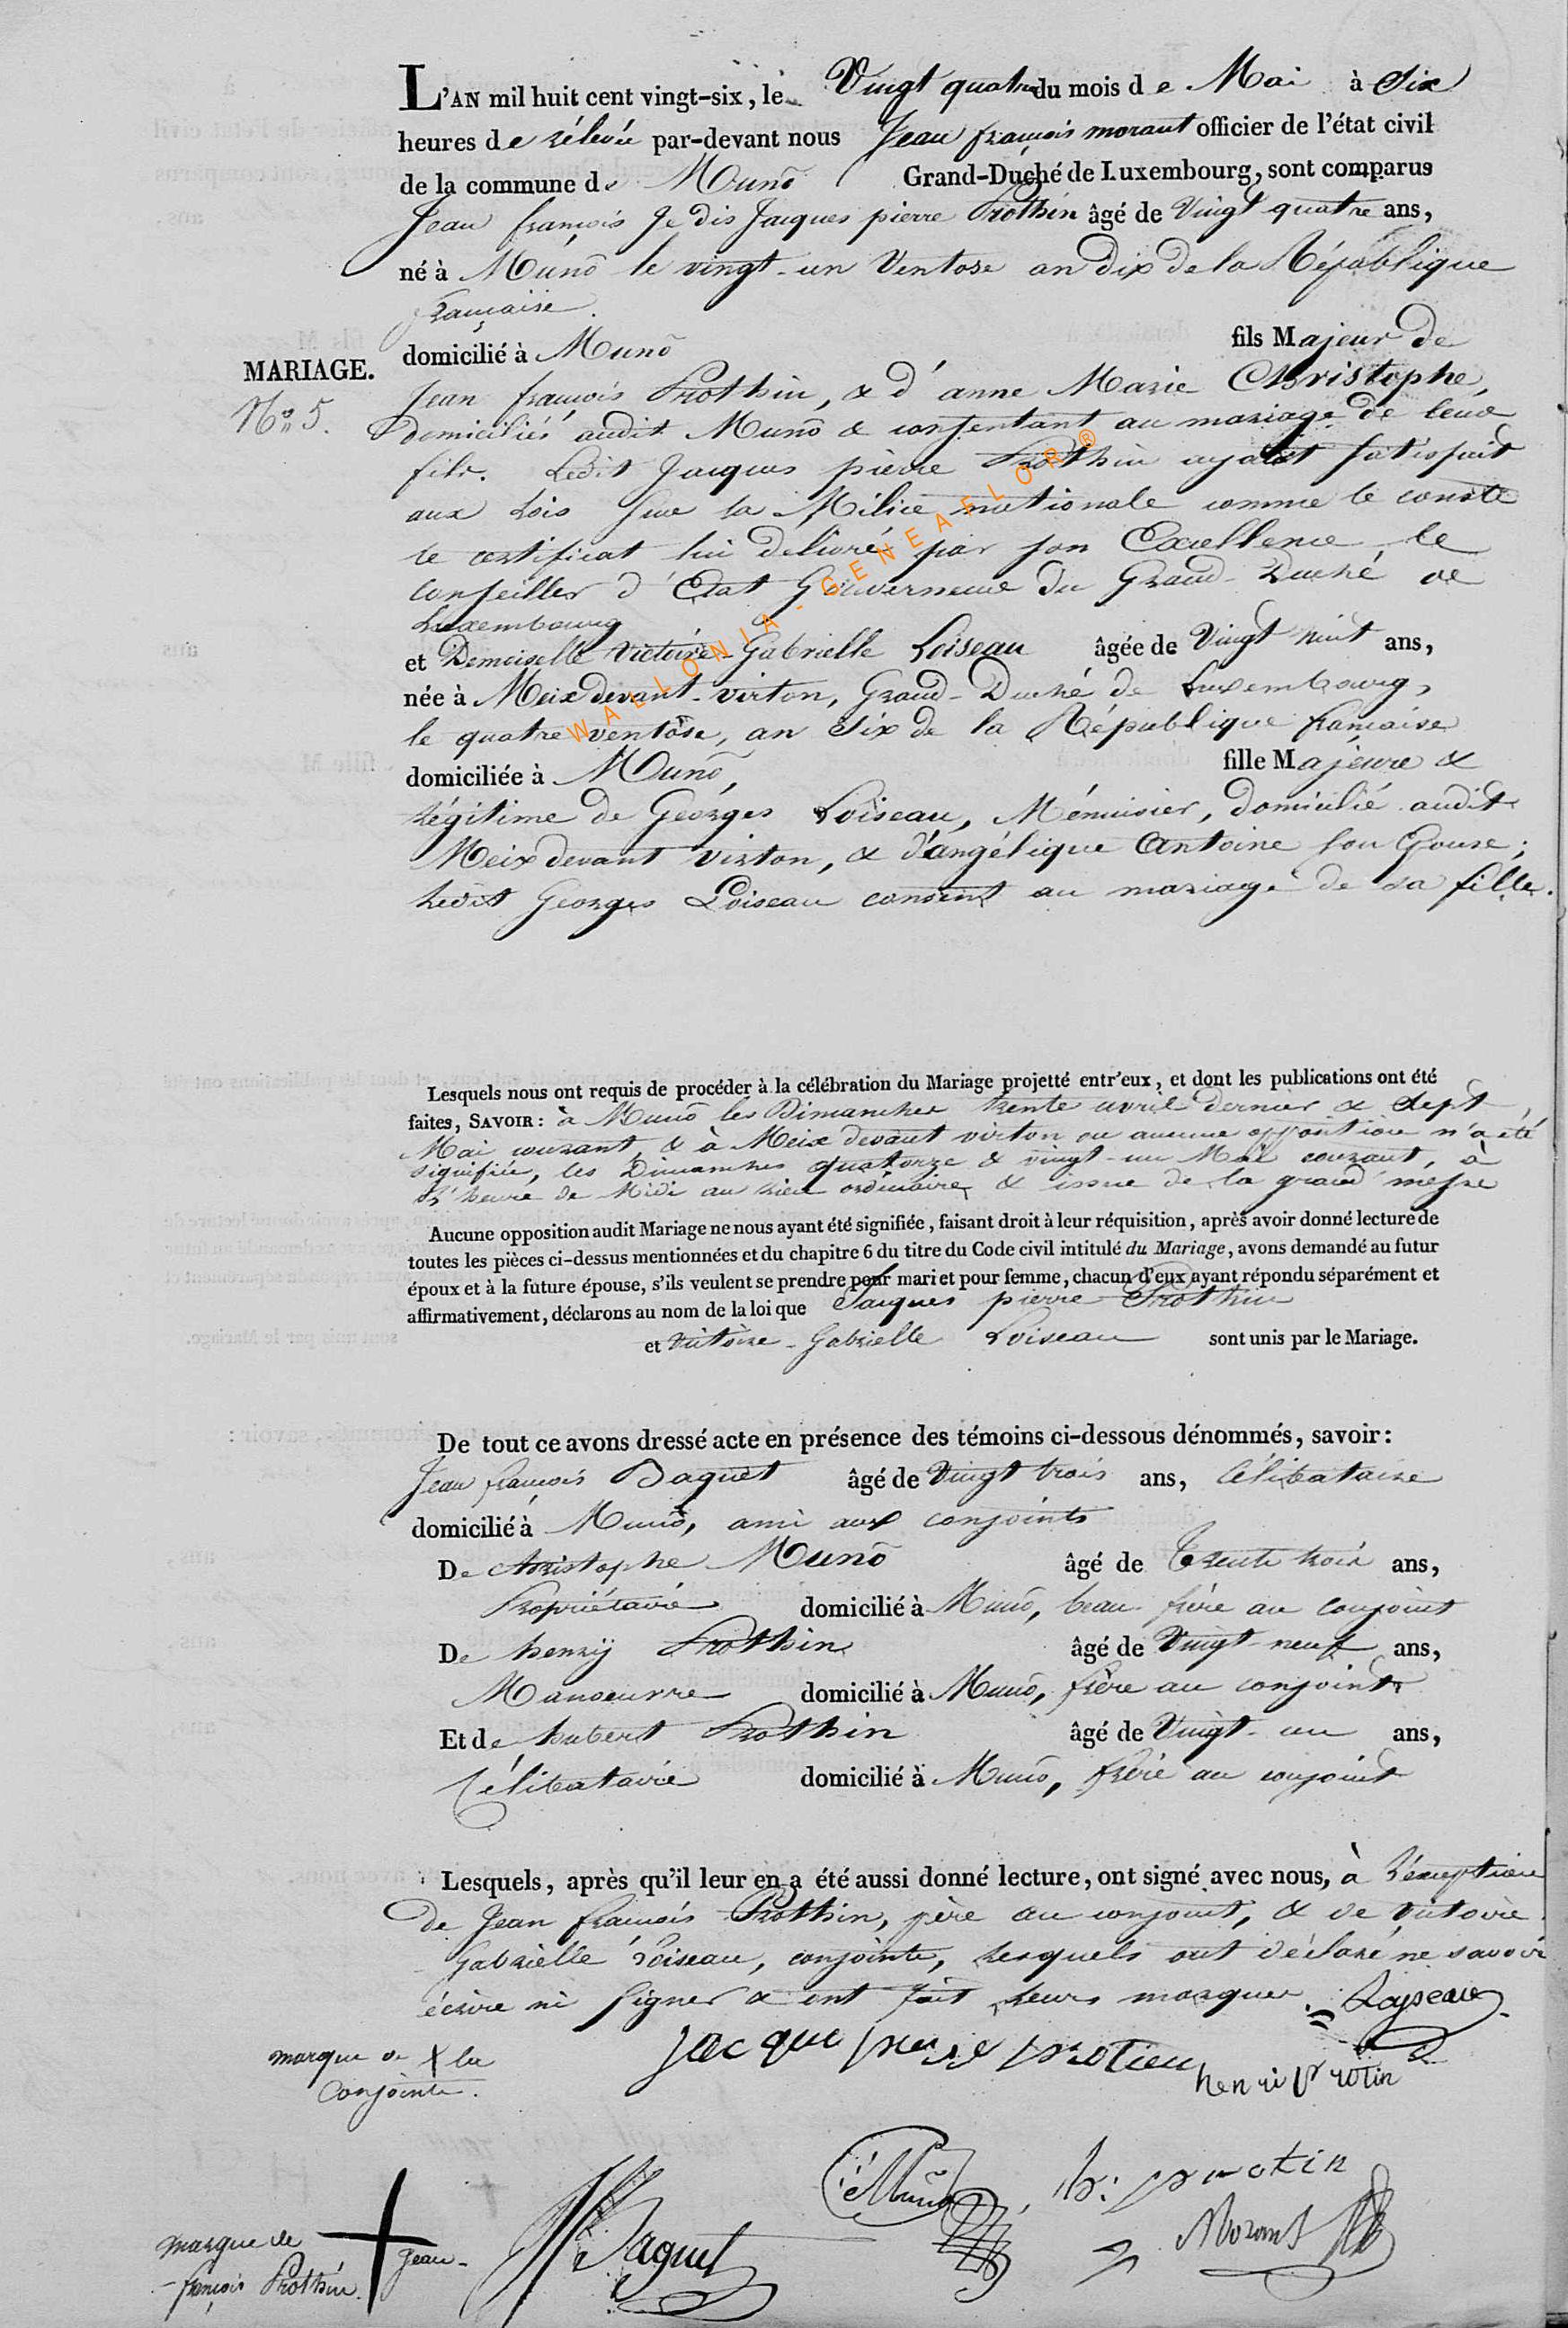 L'AN mil huit cent vingt-six, le Vingt quatre du mois de Mai à Six
heures de rélevée par-devant nous Jean françois morant officier de l'état civil
de la commune de Munõ Grand-Duché de Luxembourg, sont comparus
Jean françois Je dis Jacques pierre Prothin âgé de Vingt quatre ans,
né à Munõ le vingt-un Ventose an dix de la République
française.
domicilié à Munõ fils Majeur de
MARIAGE.
N° 5.
Jean françois Prothin, & d'anne Marie Christophe,
domiciliés audit Munõ & consentant au mariage de leur
fils. Ledit Jacques pierre Prothin ayant satisfait
aux Lois sur la Milice nationale comme le conste
le certificat lui delivré par son Excellence, le
Conseiller d'Etat Gouverneur du Grand-Duché de
Luxembourg
et Demoiselle Victoire-Gabrielle Loiseau âgée de Vingt huit ans,
née à Meix devant-virton, Grand-Duché de Luxembourg,
le quatre ventôse, an Six de la République française
domiciliée à Munõ, fille Majeure &
Légitime de Georges Loiseau, Ménuisier, domicilié audit
Meix devant virton, & d'angélique Antoine son Epouse;
Ledit Georges Loiseau consent au mariage de sa fille.
WALLONIA-GENEAFLOR®
Lesquels nous ont requis de procéder à la célébration du Mariage projetté entr'eux, et dont les publications ont été
faites, SAVOIR: à Munõ les Dimanches trente avril dernier & Sept
Mai courant, & à Meix devant virton ou aucune opposition n'a été
signifiée, les Dimanches quatorze & vingt-un Mai courant, à
L'heure de Midi au Lieu ordinaire, & issue de la grand messe
Aucune opposition audit Mariage ne nous ayant été signifiée, faisant droit à leur réquisition, après avoir donné lecture de
toutes les pièces ci-dessus mentionnées et du chapitre 6 du titre du Code civil intitulé du Mariage, avons demandé au futur
époux et à la future épouse, s'ils veulent se prendre pour mari et pour femme, chacun d'eux ayant répondu séparément et
affirmativement, déclarons au nom de la loi que Jacques pierre Prothin
et Victoire-Gabrielle Loiseau sont unis par le Mariage.
De tout ce avons dressé acte en présence des témoins ci-dessous dénommés, savoir:
Jean françois Baquet âgé de Vingt trois ans, Célibataire
domicilié à Munõ, ami aux conjoints
De christophe Munõ âgé de Trente trois ans,
Propriétaire domicilié à Munõ, beau-frère au conjoint
De henrÿ Prothin âgé de Vingt-neuf ans,
Manoeuvre domicilié à Munõ, frère au conjoint
Et de hubert Prothin âgé de Vingt-un ans,
Célibataire domicilié à Munõ, frère au conjoint
Lesquels, après qu'il leur en a été aussi donné lecture, ont signé avec nous, à l'éxception
de Jean françois Prothin, père au conjoint, & de Victoire
Gabrielle Loiseau, conjointe, Lesquels ont déclaré ne savoir
écrire ni signer & ont fait Leurs marques. Loyseau
marque de X la
Conjointe.
jacque pierre protieu
henri protin
C: Munõ
h: protin
marque de Jean-
françois Prothin.
Baquet
Morant